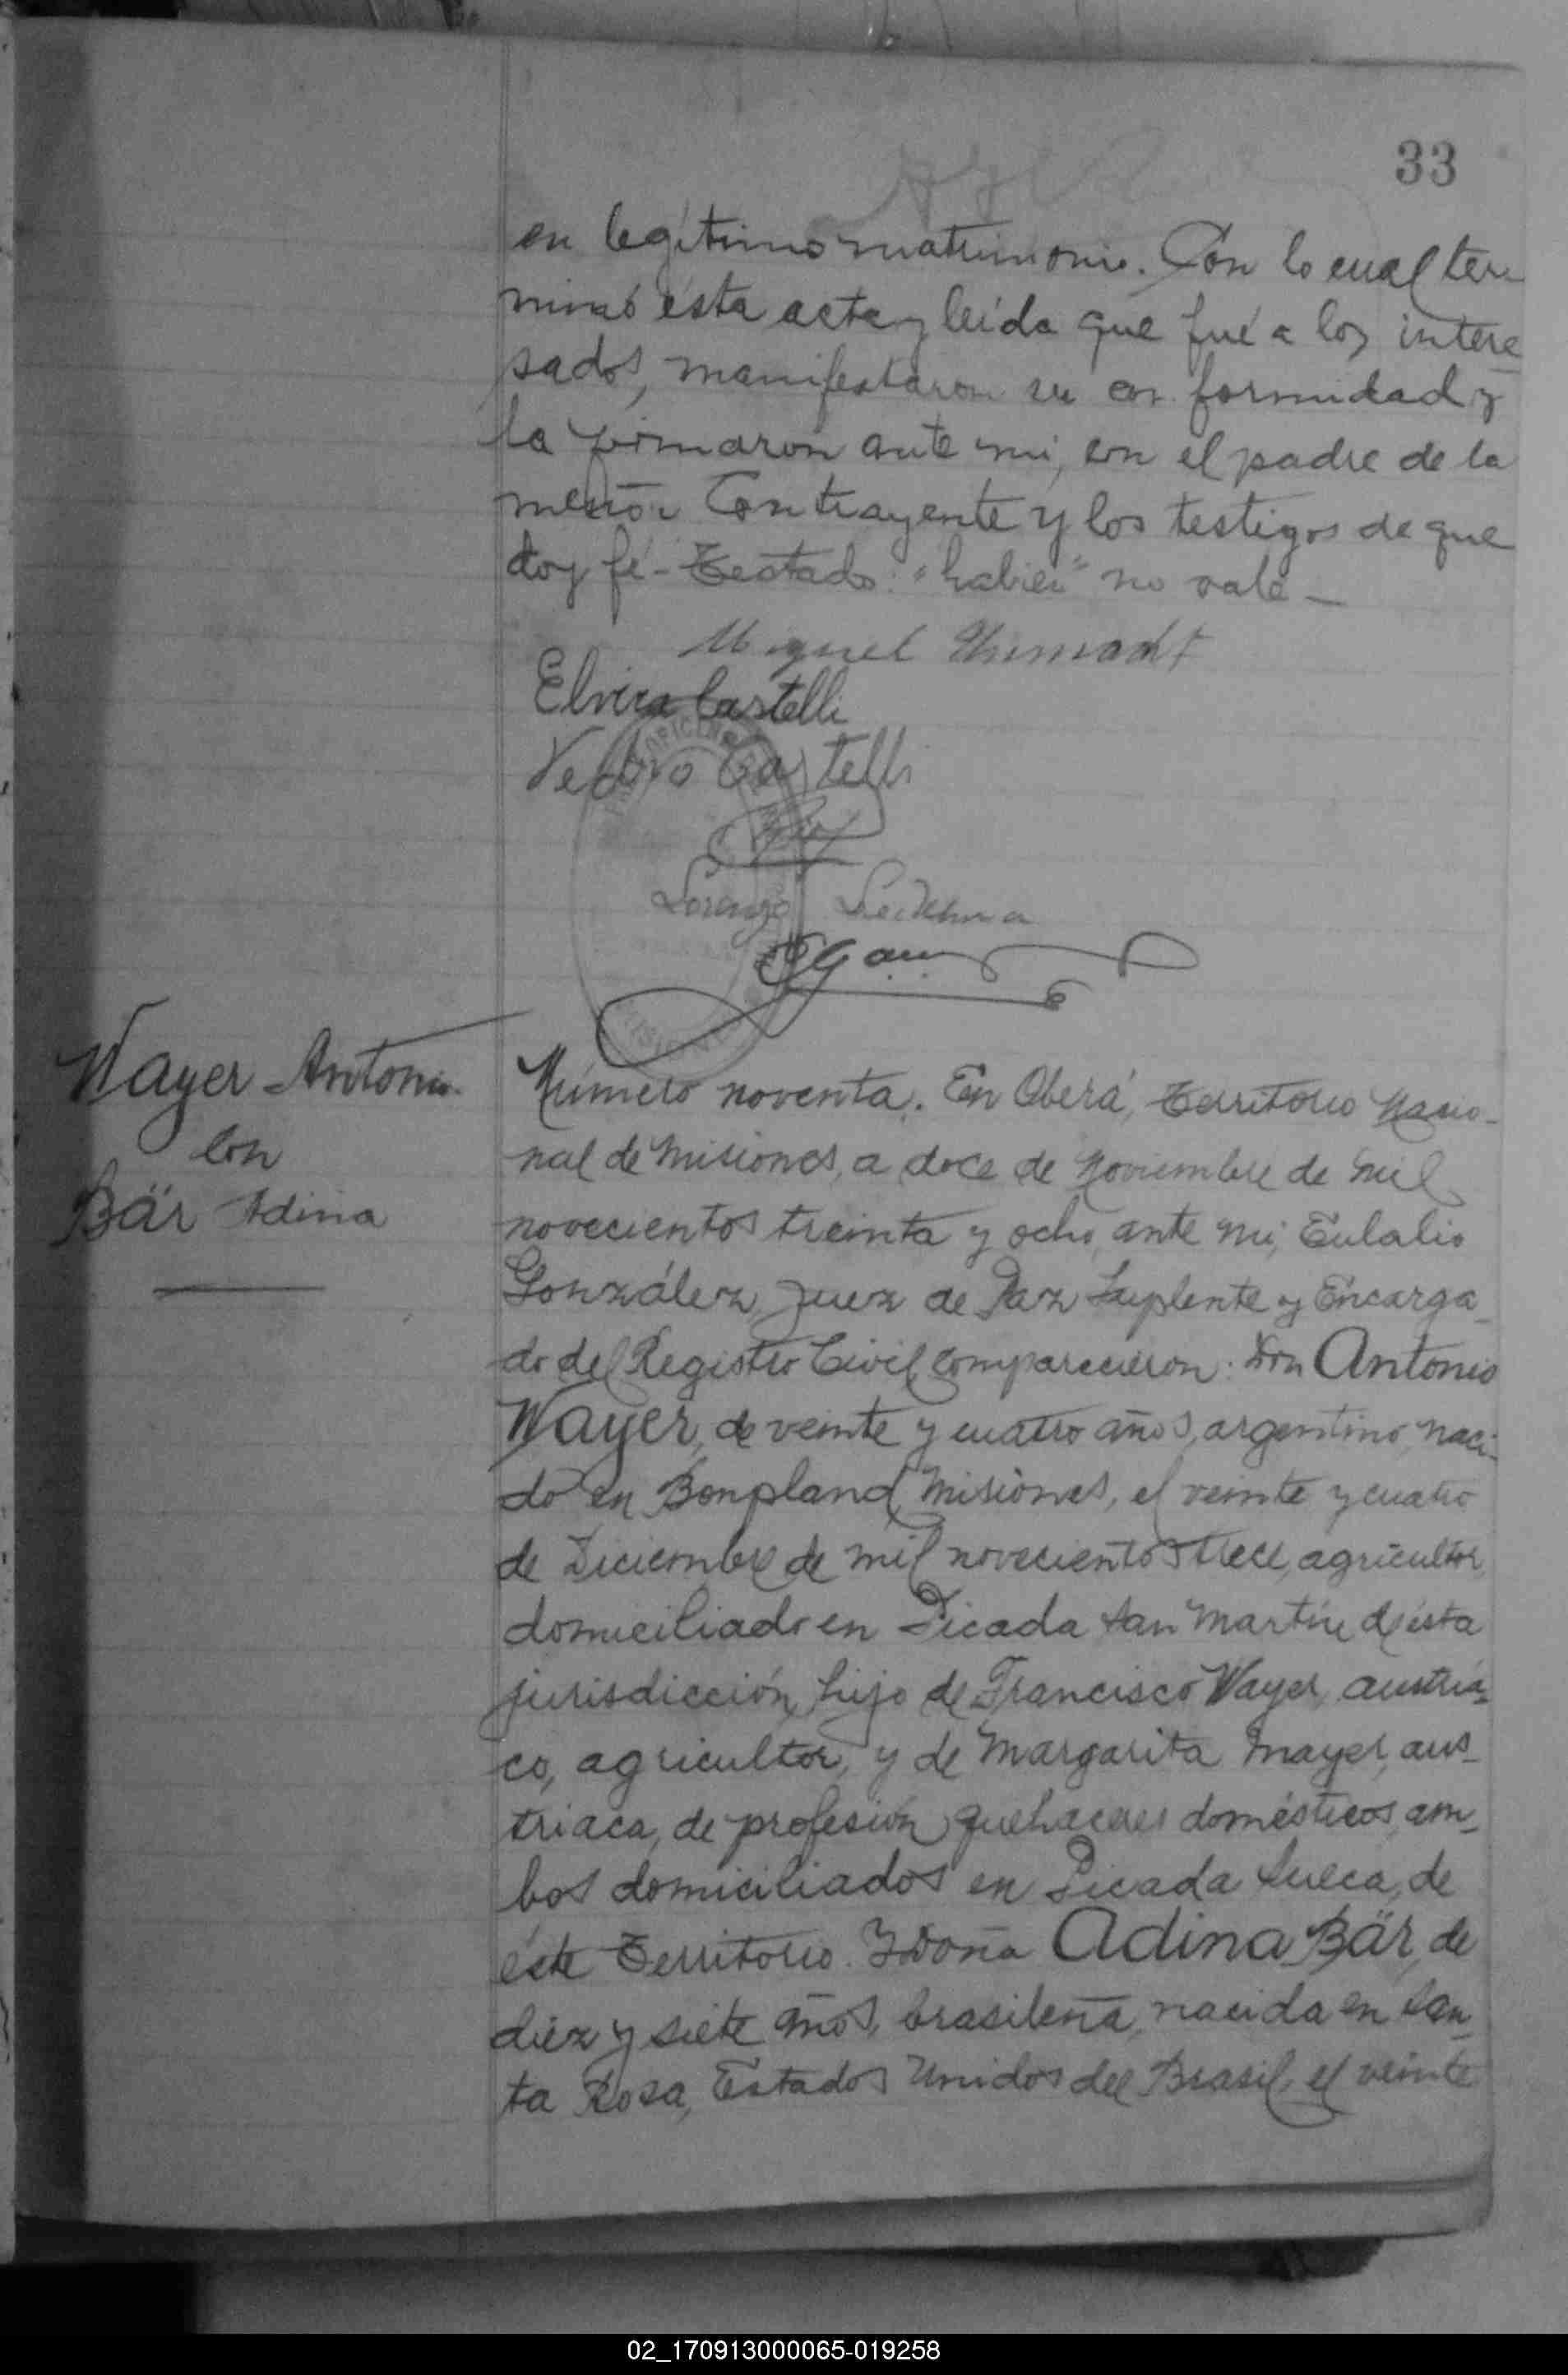 33
en legítimo matrimonio. Con lo cual ter-
minó ésta acta y leída que fué a los intere-
sados, manifestaron su conformidad y
la firmaron ante mi, con el padre de la
menor Contrayente y los testigos de que
doy fé - Testado: "habien" no vale -
Miguel
Elvira Castelli
Pedro Castelli
Lorenzo Ledesma
Wayer Antonio
con
Bär Adina
Número noventa. En Oberá, Territorio Nacio-
nal de Misiones, a doce de Noviembre de mil
novecientos treinta y ocho, ante mi, Eulalio
González, Juez de Paz Suplente y Encarga-
do del Registro Civil, comparecieron: Don Antonio
Wayer, de veinte y cuatro años, argentino, naci-
do en Bonpland, Misiones, el veinte y cuatro
de Diciembre de mil novecientos trece, agricultor,
domiciliado en Picada San Martín de ésta
jurisdicción, hijo de Francisco Wayer, austría-
co, agricultor, y de Margarita Mayer, aus-
triaca, de profesión quehaceres domésticos, am-
bos domiciliados en Picada Sueca, de
éste Territorio. Y Doña Adina Bär, de
diez y siete años, brasileña, nacida en San-
ta Rosa, Estados Unidos del Brasil, el veinte
02_170913000065-019258